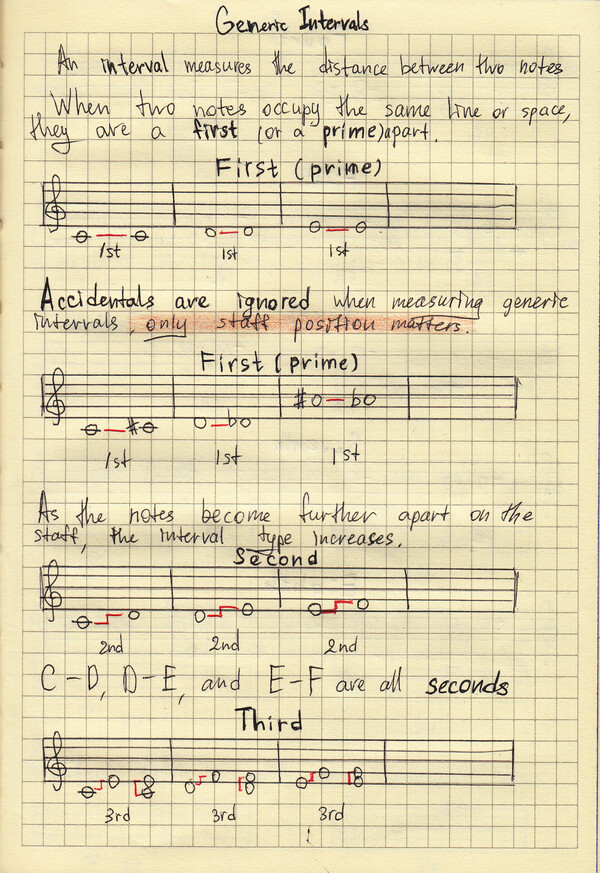 Generic Intervals
An interval measures the distance between two notes
When two notes occupy the same line or space,
they are a first (or a prime) apart.
First (prime)
1st 1st 1st
Accidentals are ignored when measuring generic
intervals, only staff position matters.
First (prime)
1st 1st 1st
As the notes become further apart on the
staff, the interval type increases.
Second
2nd 2nd 2nd
C-D, D-E, and E-F are all seconds
Third
3rd 3rd 3rd